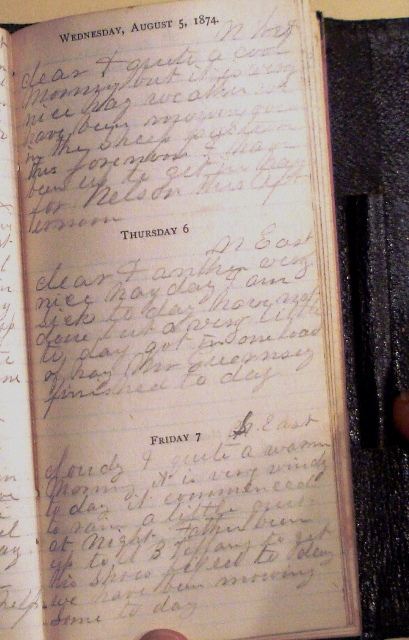 WEDNESDAY, AUGUST 5, 1874.
N West
clear & quite a cool
morning but it is very
nice hay weather we
have been mowing
in the sheep pasture
this forenoon I have
been up to get in hay
for Nelson this after
noon
THURSDAY 6
N East
clear & anther very
nice hay day I am
sick to day have not
done but a very little
to day got in one load
of hay Mr Guernsey
finished to day
FRIDAY 7
S. East
cloudy & quite a warm
morning it is very windy
to day it commenced
to rain a little
at night Father been
up to U B Tiffany to get
his Shoes fixed to day
we have been mowing
some to day
help